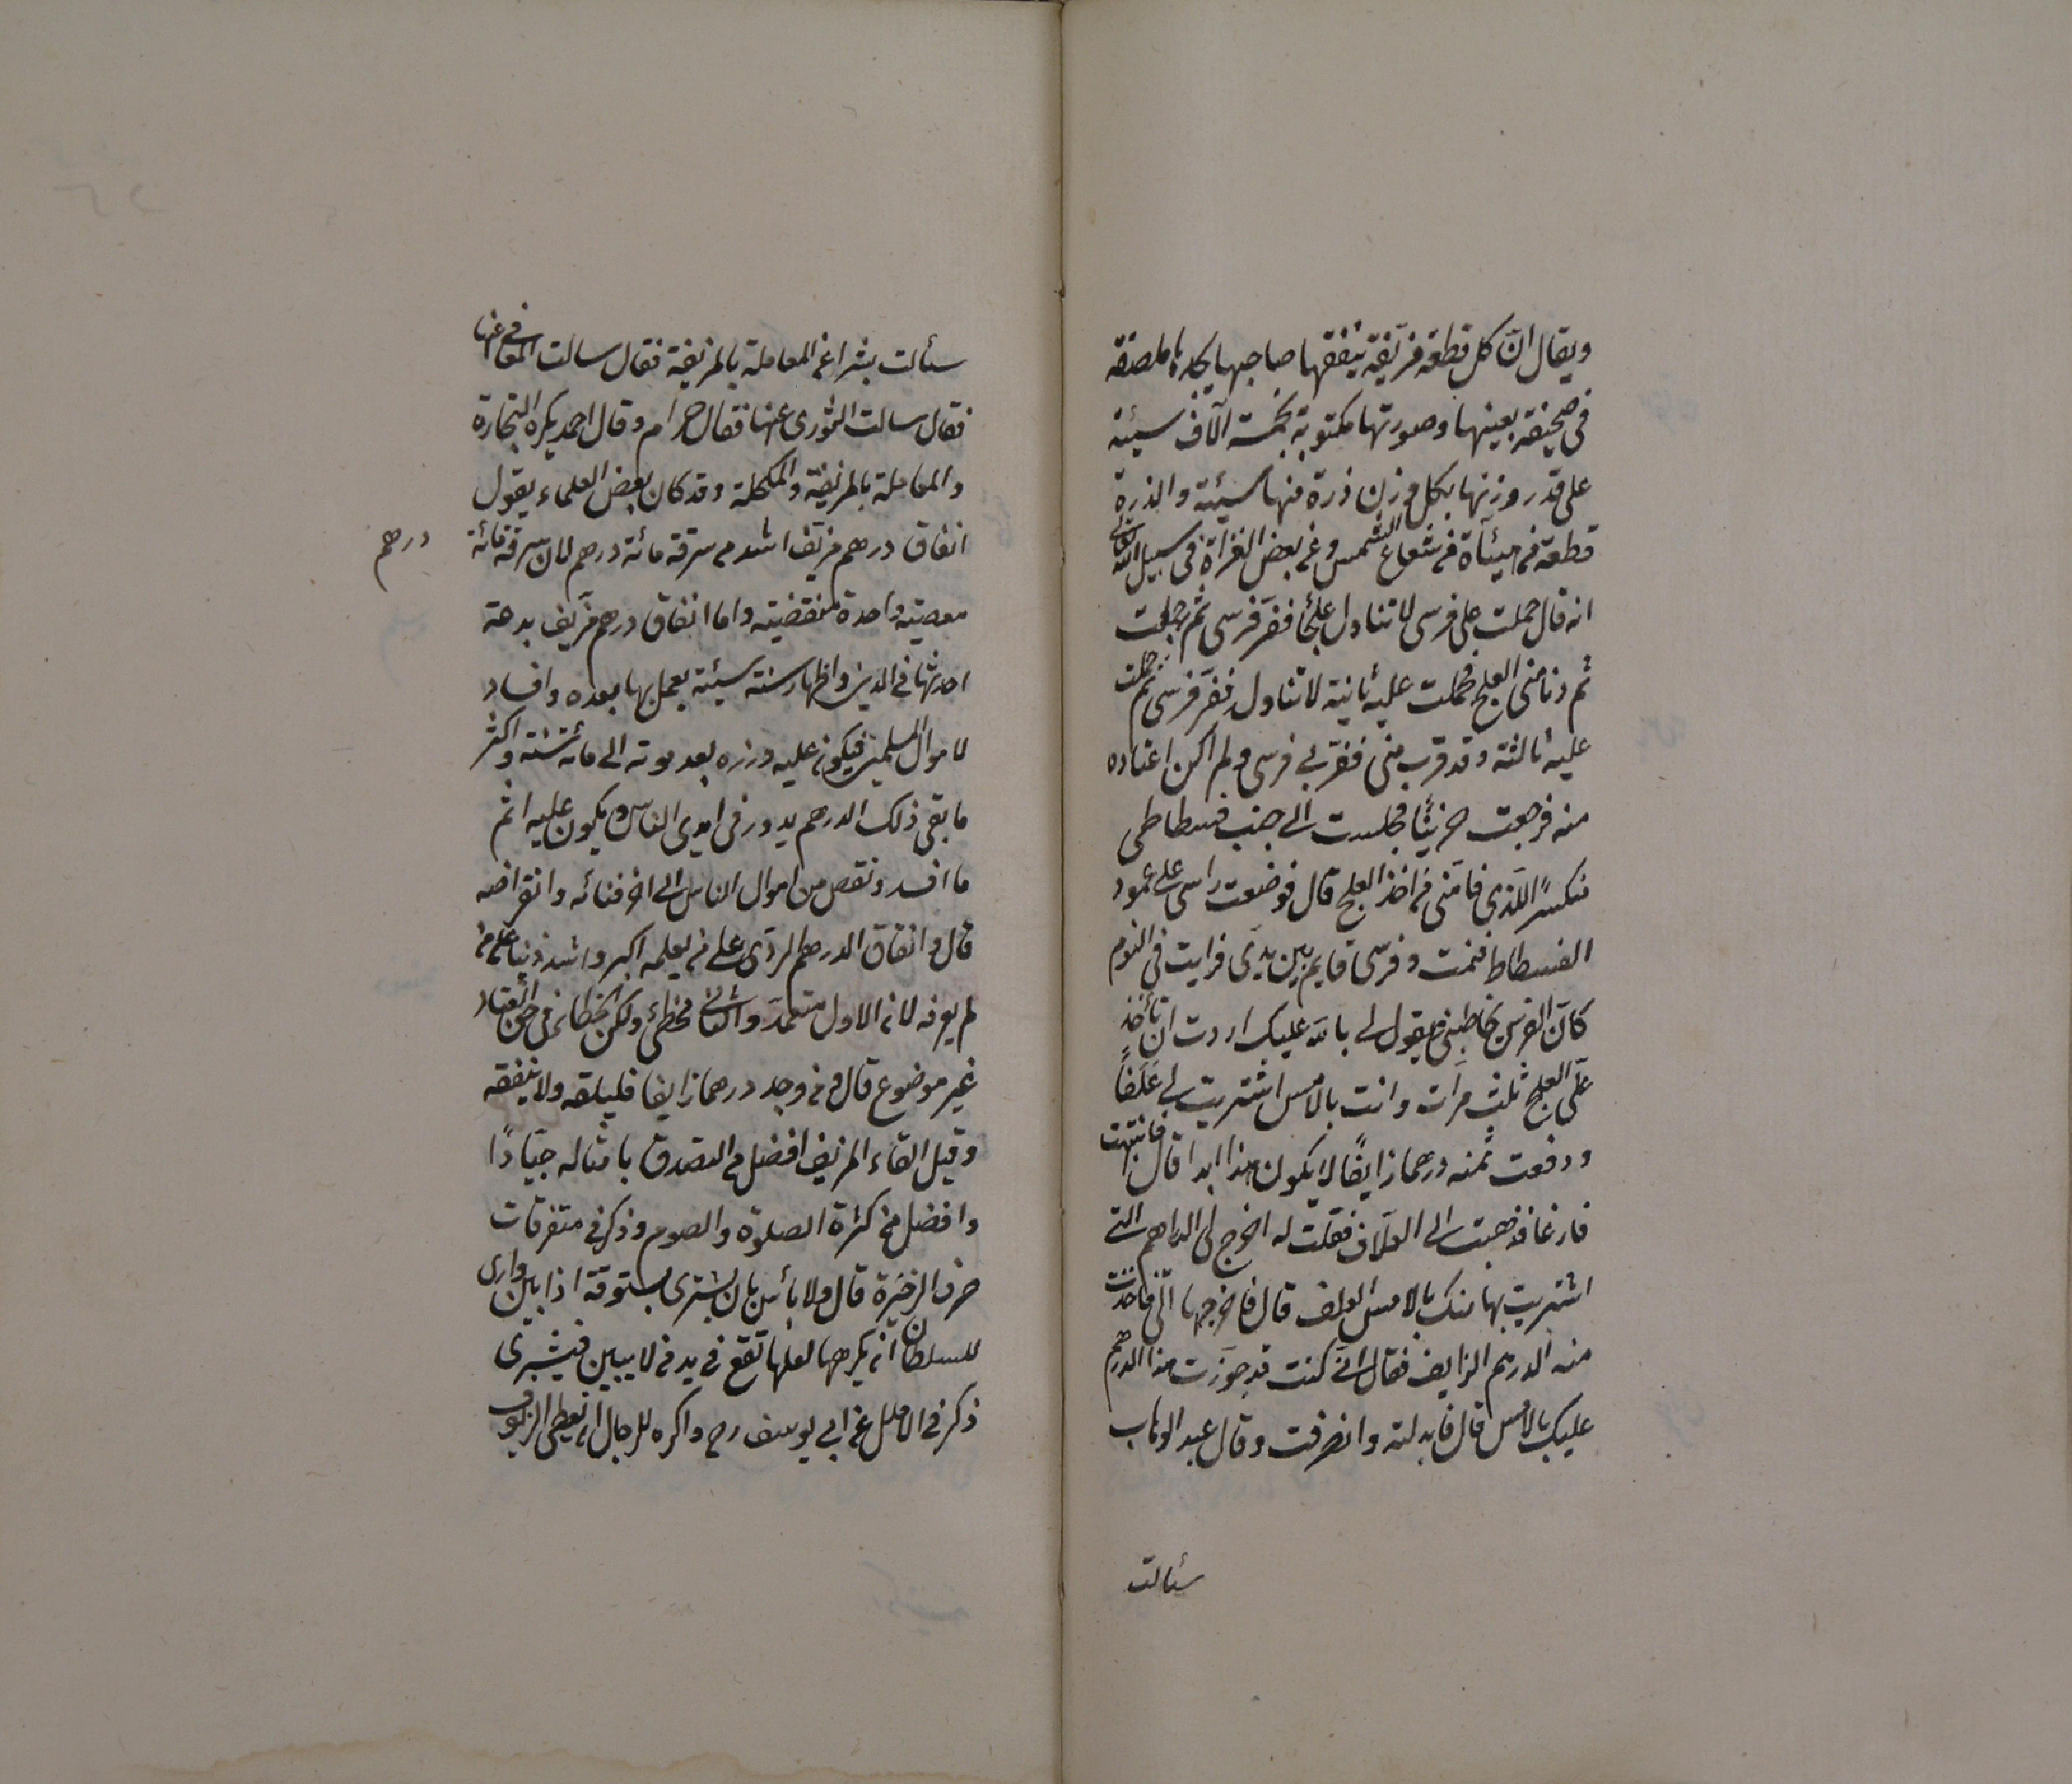 ويقال ان كل قطعة مزيفة ينفقها صاحبها يجدها ملصقة
في صحيفته بعينها وصورتها مكتوبة بخمسة الآف سيئة
على قدر وزنها بكل وزن ذرة منها سيئة والذرة
قطعة من شعاع الشمس وعن بعض الغزاة في سبيل الله تعالى
انه قال حملت على فرسي لاتناول علجًا ففر فرسي ثم رجعت
ثم دنا مني العلج فحملت عليه ثانية لاتناول ففر فرسي ثم حملت
عليه ثالثة وقد قرب مني ففر بي فرسي ولم اكن اعتاده
منه فرجعت حزينًا فجلست الى جنب فسطاطي
منكسرًا للذي فاتني من اخذ العلج قال فوضعت راسي على عمود
الفسطاط فنمت وفرسي قايم بين يدي فرايت في النوم
كان الفرس يخاطبني ويقول لي بالله عليك اردت ان تأخذ
على العلج ثلث مرات وانت بالامس اشتريت لي علفًا
ودفعت ثمنه درهما زايفًا لا يكون هذا ابدا قال فانتبهت
فازعا فذهبت الى العلاف فقلت له اخرج لي الدراهم التي
اشتريت بها منك بالامس العلف قال فاخرجها الي فاخذت
منه الدرهم الزايف فقال اني كنت قد جوزت هذا الدرهم
عليك بالامس قال فابدلته وانصرفت وقال عبد الوهاب
سئالت
سئالت بشرا عن المعاملة بالمزيفة فقال سالت المعافى عنها
فقال سالت الثوري عنها فقال حرام وقال احمد يكره التجارة
والمعاملة بالمزيفة والمكحلة وقد كان بعض العلماء يقول
انفاق درهم مزيف اشد من سرقة مائة درهم لان سرقة مائة
درهم
معصية واحدة منقضية واما انفاق درهم مزيف بدعة
احدثها في الدين واظهار سنة سيئة يعمل بها بعده وافساد
لاموال المسلمين فيكون عليه وزره بعد موته الى مائة سنة واكثر
ما بقي ذلك الدرهم يدور في ايدي الناس ويكون عليه اثم
ما افسد ونقص من اموال الناس الى اخر فنائه وانقراضه
قال وانفاق الدرهم الردي على من يعلمه اكبر واشد ذنبا على من
لم يعرفه لان الاول متعمد والثاني مخطئ ولكن الخطا في حق العباد
غير موضوع قال ومن وجد درهما زايفا فليلقه ولا ينفقه
وقيل القاء المزيف افضل من التصدق بامثاله جيادًا
وافضل من كثرة الصلوة والصوم وذكر في متفرقات
صرف الذخيرة قال ولا بأس بان يشترى بستوقة اذا بين وارى
للسلطان انه يكرهها لعلها تقع في يد من لا يبين فيشترى
ذكر في الامل عن ابي يوسف رح واكره للرجال ان يعطى الزيوف